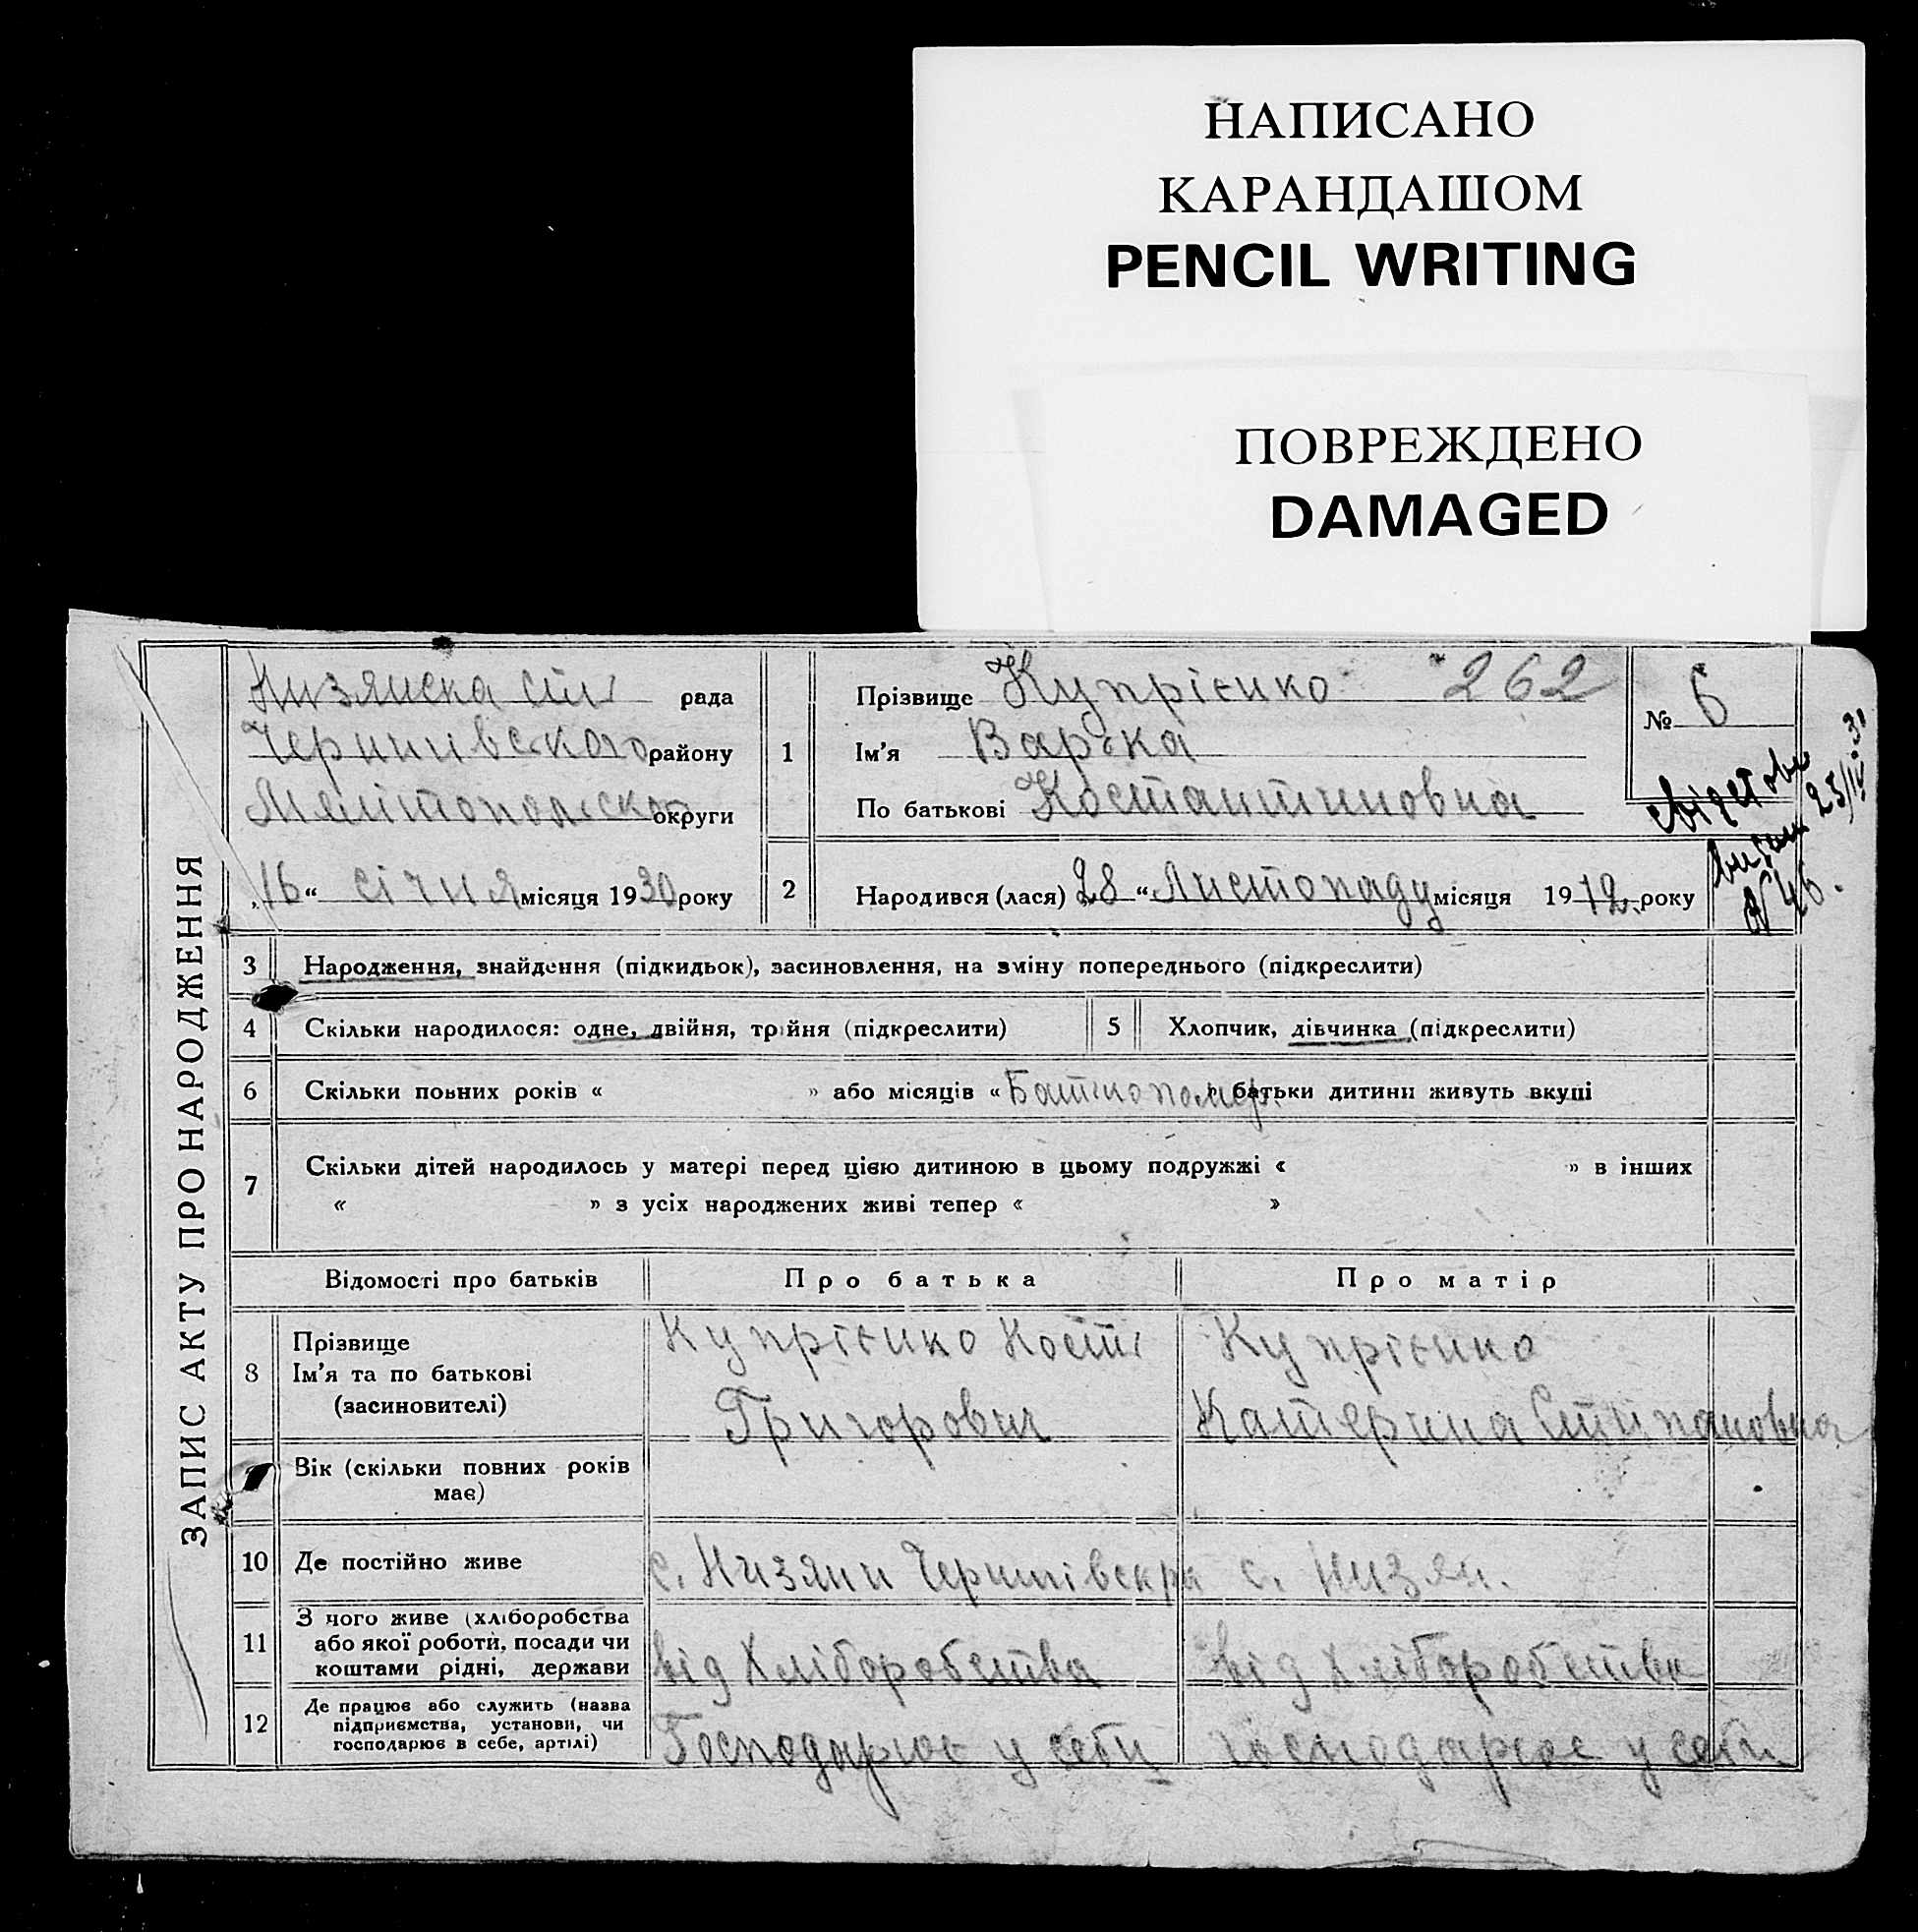 НАПИСАНО
КАРАНДАШОМ
PENCIL WRITING
ПОВРЕЖДЕНО
DAMAGED
ЗАПИС АКТУ ПРО НАРОДЖЕННЯ
Низянска сіл рада
Чернигівского району
Мелітопольско округи
„16“ січня місяця 1930 року
1
Прізвище Купрієнко 262
Ім'я Варька
По батькові Костантиновна
№ 6
2 Народився (лася) 28 “ Листопаду місяця 1912 року
25/IV 31
№ 46.
3 Народження, знайдення (підкидьок), засиновлення, на зміну попереднього (підкреслити)
4 Скільки народилося: одне, двійня, трійня (підкреслити) 5 Хлопчик, дівчинка (підкреслити)
6 Скільки повних років « » або місяців « Батько помер. батьки дитини живуть вкупі
7 Скільки дітей народилось у матері перед цією дитиною в цьому подружжі « » в інших
« » з усіх народжених живі тепер « »
Відомості про батьків Про батька Про матір
8 Прізвище
Ім'я та по батькові
(засиновителі)
Купрієнко Кост
Григорович
Купрієнко
Катерина Степановна
Вік (скільки повних років
має)
10 Де постійно живе с. Низяни Чернигівск р с. Низян.
11 З чого живе (хліборобства
або якої роботи, посади чи
коштами рідні, держави
від Хліборобства від Хліборобства
12 Де працює або служить (назва
підприємства, установи, чи
господарює в себе, артілі)
Господарює у себи господарює у себи